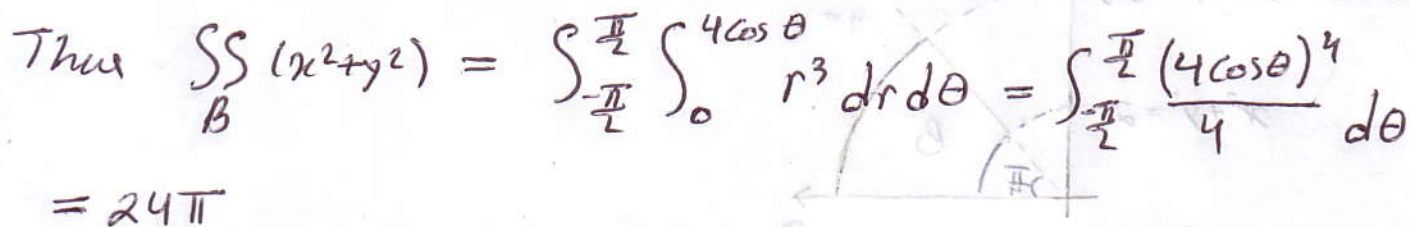 Thus ∬_B (x²+y²) = ∫_{-π/2}^{π/2} ∫_0^{4cos θ} r³ dr dθ = ∫_{-π/2}^{π/2} (4cosθ)⁴/4 dθ
= 24π